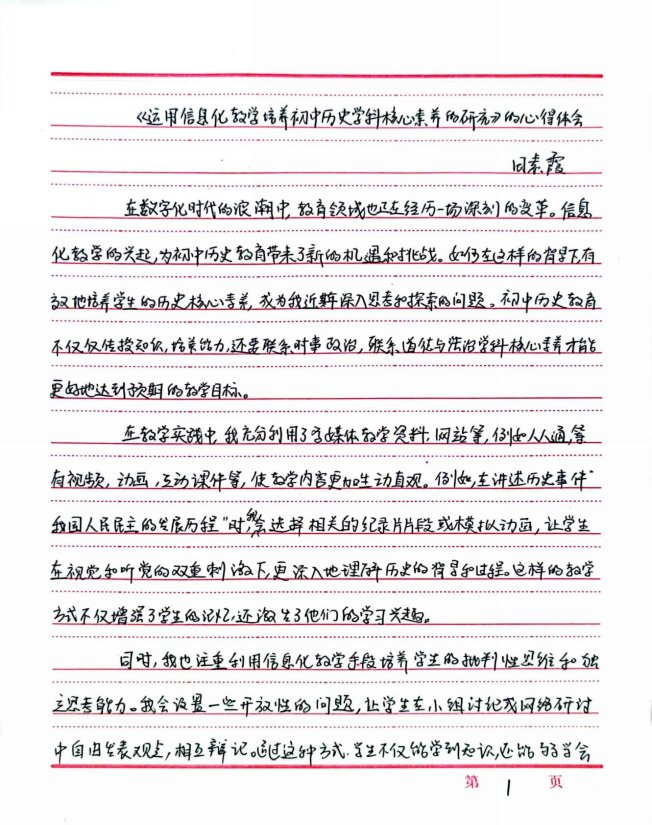 《运用信息化教学培养初中历史学科核心素养的研究》的心得体会
田素霞
在数字化时代的浪潮中，教育领域也正在经历一场深刻的变革。信息
化教学的兴起，为初中历史教育带来了新的机遇和挑战。如何在这样的背景下，有
效地培养学生的历史核心素养，成为我近年深入思考和探索的问题。初中历史教育
不仅仅传授知识，培养能力，还要联系时事政治，联系道德与法治学科核心素养才能
更好地达到预期的教学目标。
在教学实践中，我充分利用了多媒体教学资料、网站等，例如人人通，等
有视频，动画，互动课件等，使教学内容更加生动直观。例如，在讲述历史事件“
我国人民民主的发展历程”时，我会选择相关的纪录片片段或模拟动画，让学生
在视觉和听觉的双重刺激下，更深入地理解历史的背景和过程。这样的教学
方式不仅增强了学生的记忆，还激发了他们的学习兴趣。
同时，我也注重利用信息化教学手段培养学生的批判性思维和独
立思考能力。我会设置一些开放性的问题，让学生在小组讨论或网络研讨
中自由发表观点，相互辩论。通过这种方式，学生不仅能学到知识，还能够学会
第 1 页